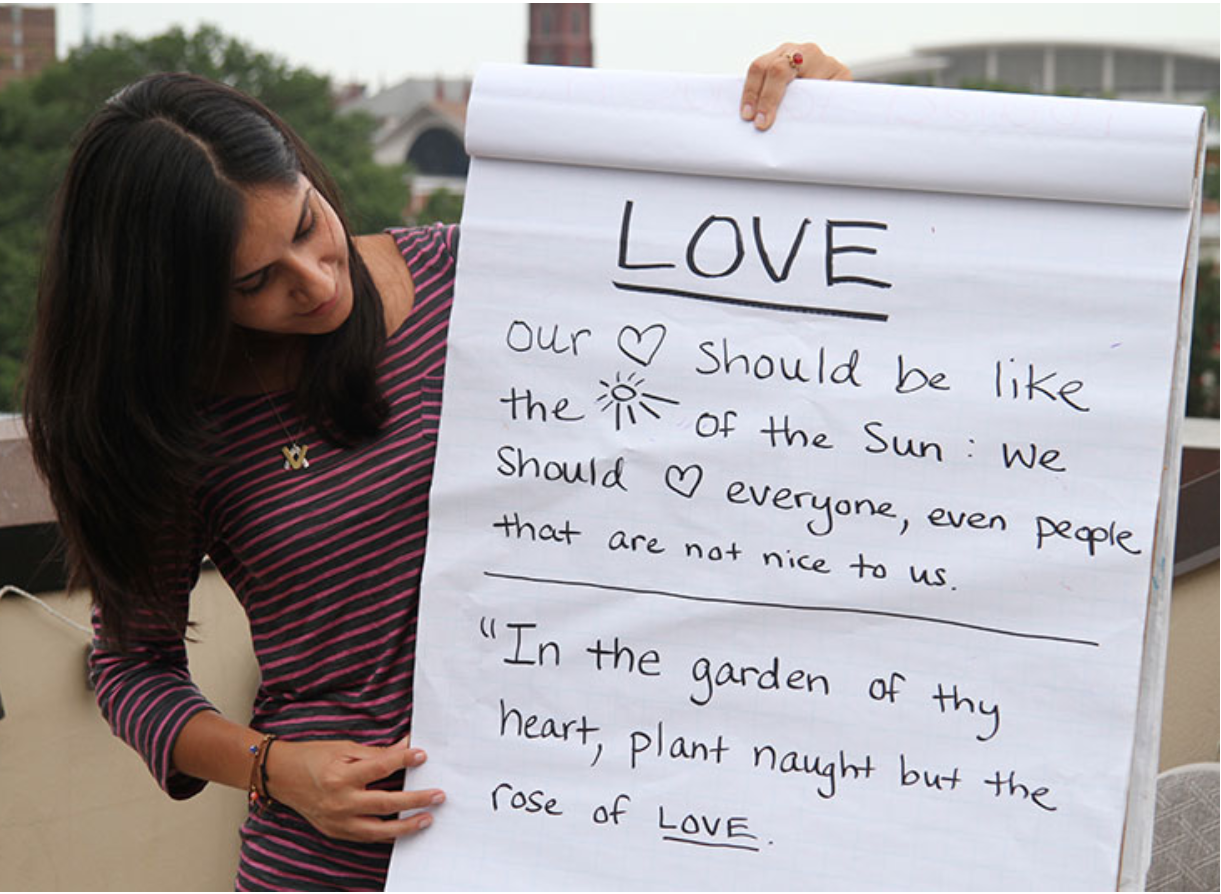 LOVE
our ♡ should be like
the ☀ of the Sun : we
should ♡ everyone, even people
that are not nice to us.
"In the garden of thy
heart, plant naught but the
rose of LOVE.